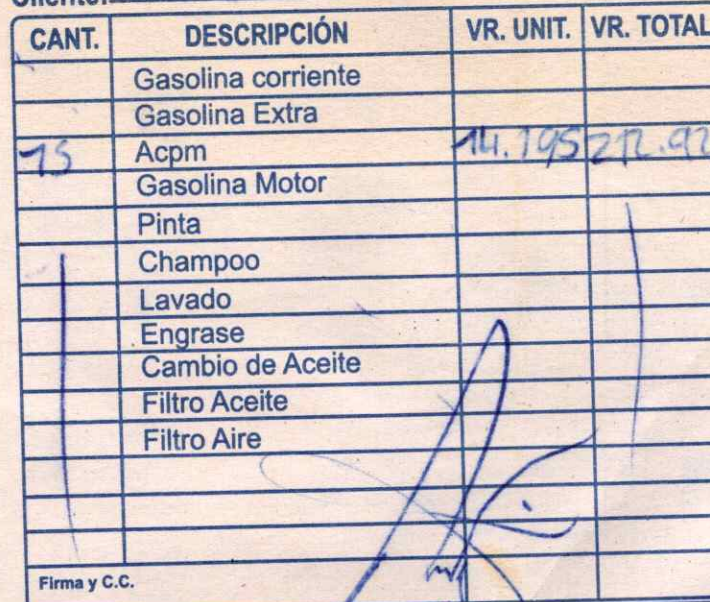 CANT. DESCRIPCIÓN VR. UNIT. VR. TOTAL
Gasolina corriente
Gasolina Extra
15 Acpm 14.195 212.92
Gasolina Motor
Pinta
Champoo
Lavado
Engrase
Cambio de Aceite
Filtro Aceite
Filtro Aire
Firma y C.C.